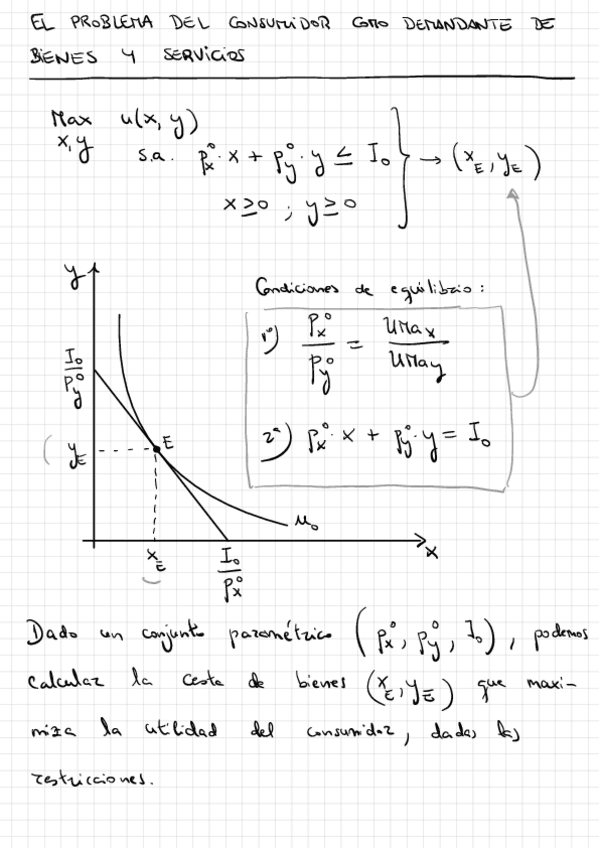 EL PROBLEMA DEL CONSUMIDOR COMO DEMANDANTE DE
BIENES Y SERVICIOS
Max u(x, y)
x,y
s.a. Px⁰·x + Py⁰·y ≤ I₀ } → (x_E, y_E)
x ≥ 0 ; y ≥ 0
y
Condiciones de equilibrio:
1ª) Px⁰/Py⁰ = UMax/UMay
I₀/Py⁰
2ª) Px⁰·x + Py⁰·y = I₀
E
y_E
u₀
x
x_E
I₀/Px⁰
Dado un conjunto paramétrico (Px⁰, Py⁰, I₀), podemos
calcular la cesta de bienes (x_E, y_E) que maxi-
miza la utilidad del consumidor, dadas las
restricciones.